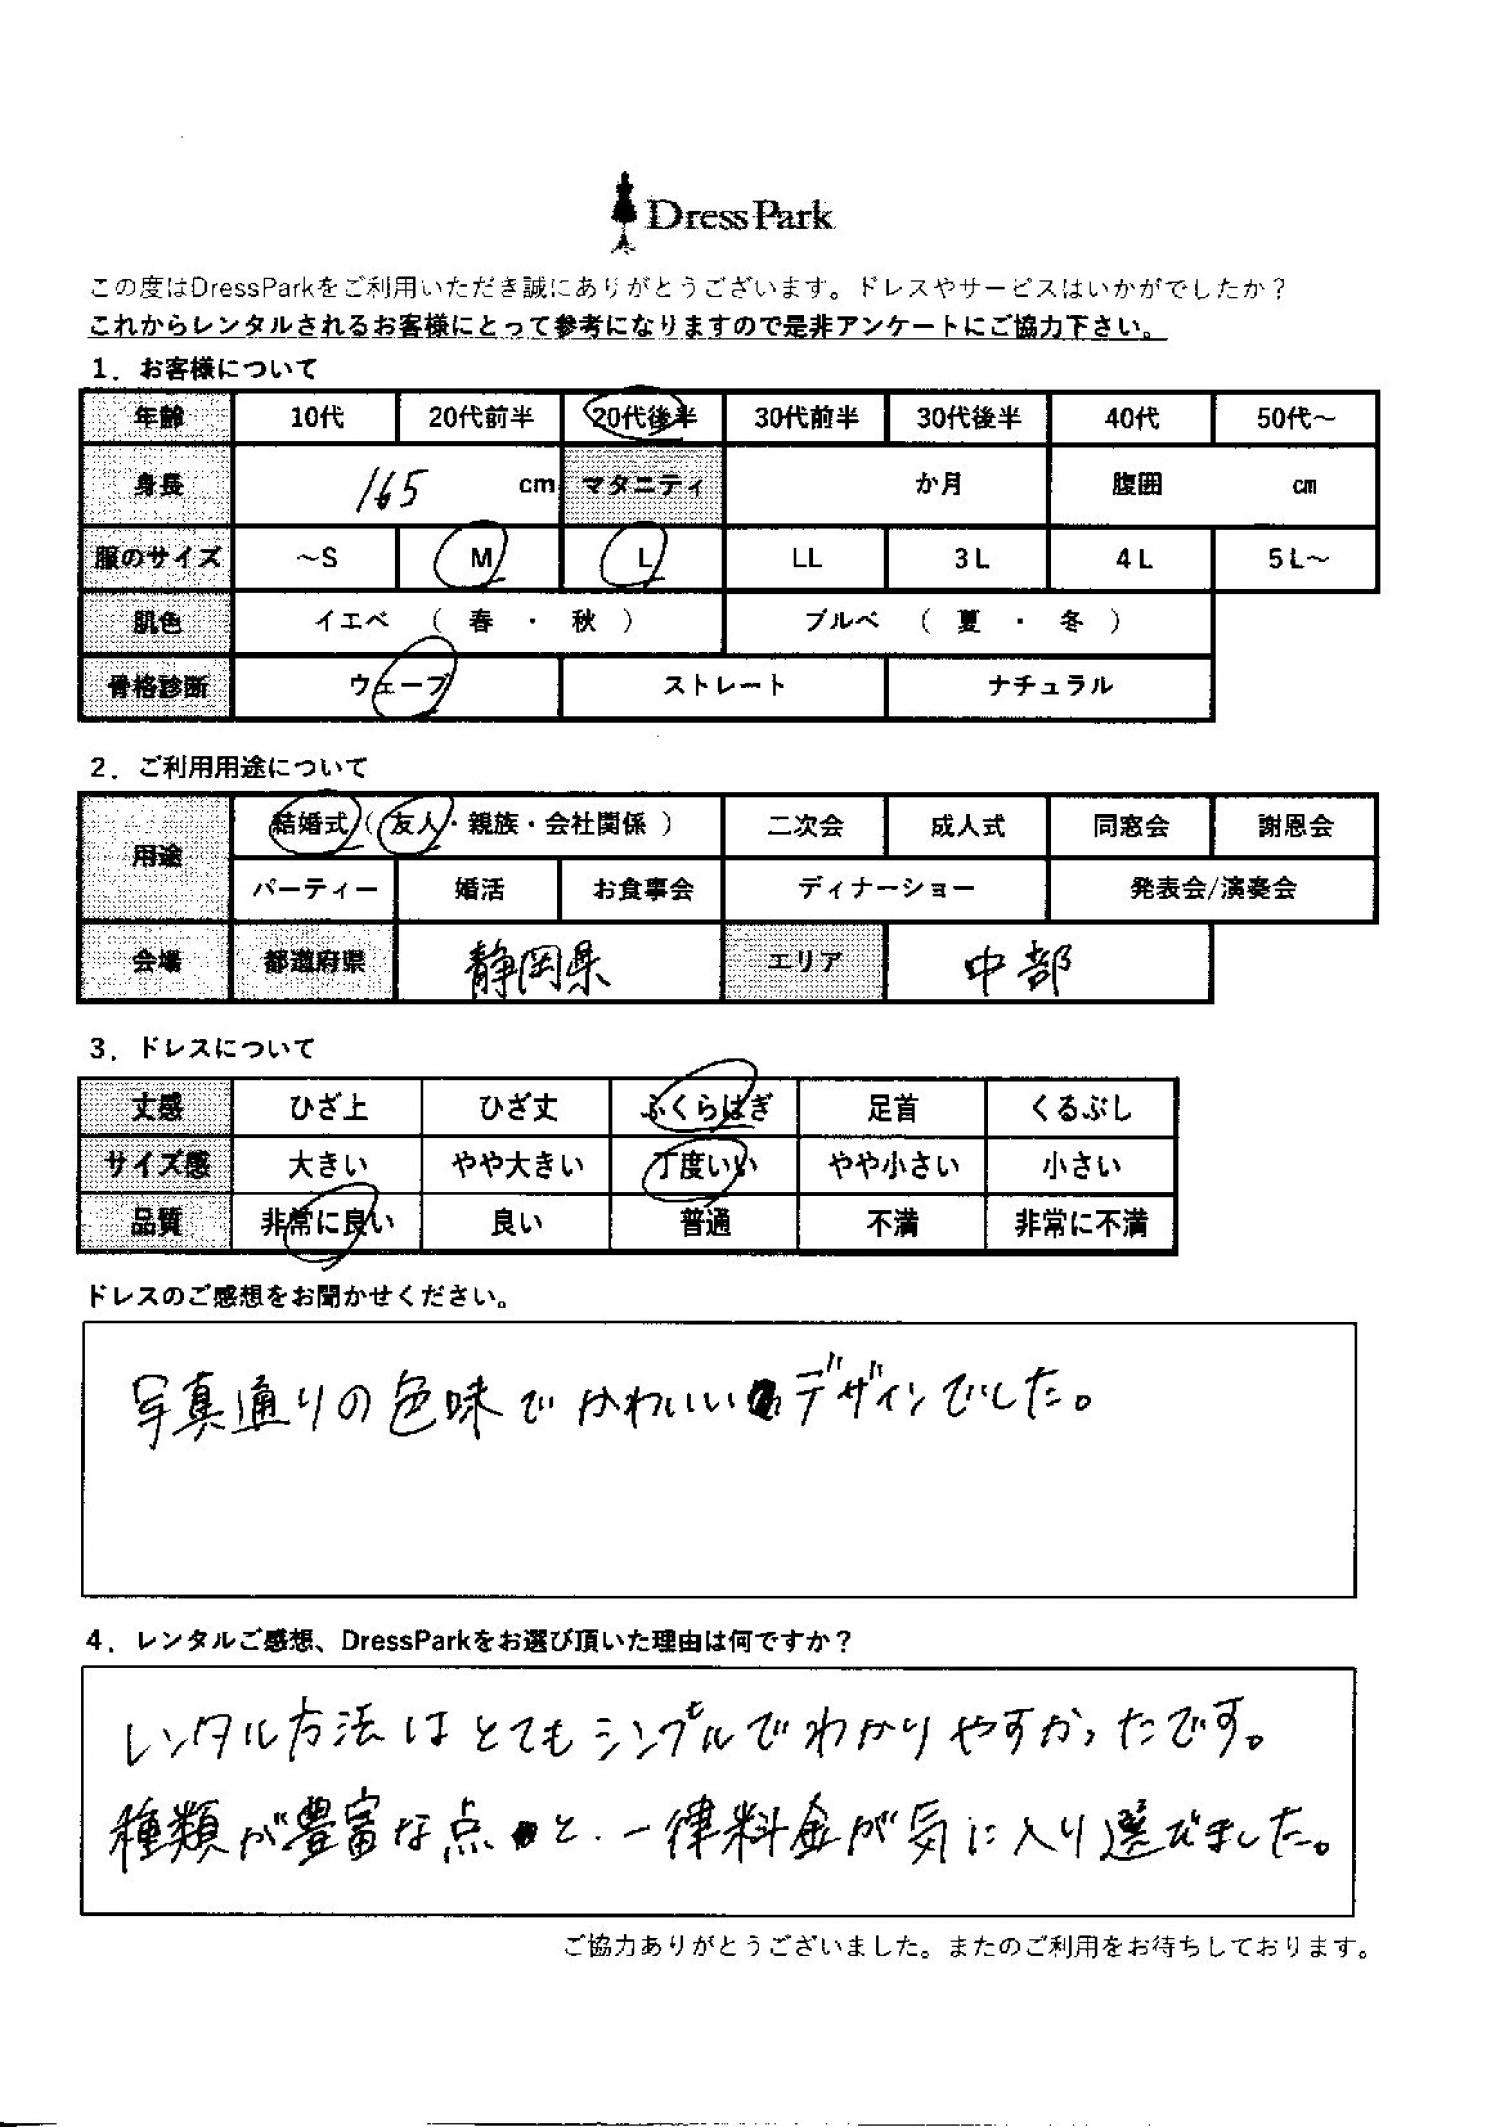 DressPark
この度はDressParkをご利用いただき誠にありがとうございます。ドレスやサービスはいかがでしたか？
これからレンタルされるお客様にとって参考になりますので是非アンケートにご協力下さい。
1．お客様について
年齢 10代 20代前半 20代後半 30代前半 30代後半 40代 50代～
身長 165 cm マタニティ か月 腹囲 cm
服のサイズ ～S M L LL 3L 4L 5L～
肌色 イエベ （ 春 ・ 秋 ） ブルベ （ 夏 ・ 冬 ）
骨格診断 ウェーブ ストレート ナチュラル
2．ご利用用途について
用途 結婚式（ 友人・親族・会社関係 ） 二次会 成人式 同窓会 謝恩会
パーティー 婚活 お食事会 ディナーショー 発表会/演奏会
会場 都道府県 静岡県 エリア 中部
3．ドレスについて
丈感 ひざ上 ひざ丈 ふくらはぎ 足首 くるぶし
サイズ感 大きい やや大きい 丁度いい やや小さい 小さい
品質 非常に良い 良い 普通 不満 非常に不満
ドレスのご感想をお聞かせください。
写真通りの色味でかわいいデザインでした。
4．レンタルご感想、DressParkをお選び頂いた理由は何ですか？
レンタル方法はとてもシンプルでわかりやすかったです。
種類が豊富な点と、一律料金が気に入り選びました。
ご協力ありがとうございました。またのご利用をお待ちしております。